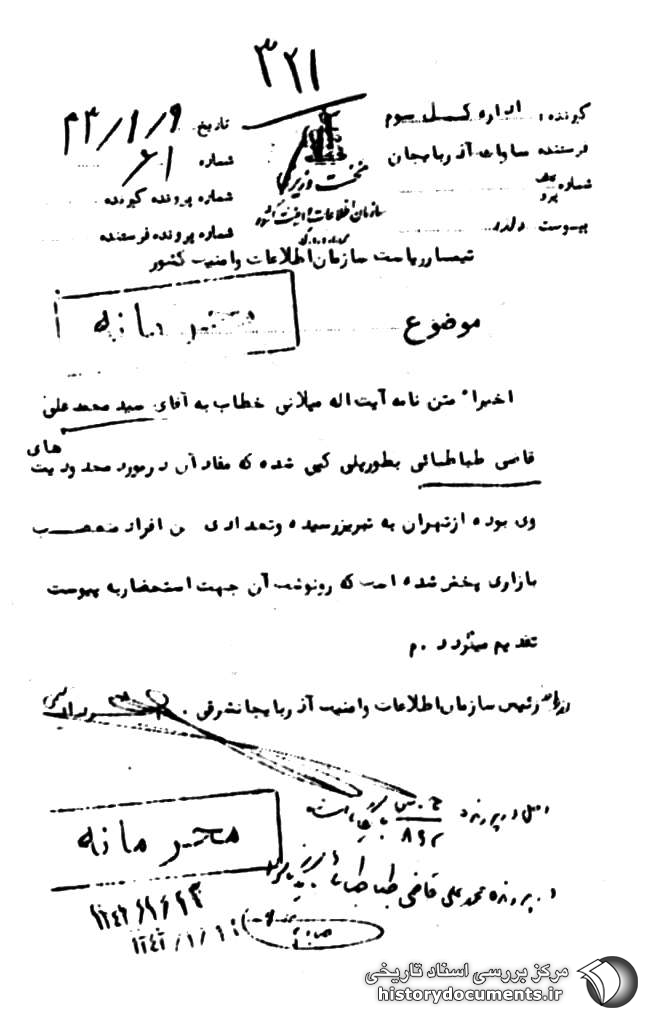 ۳۲۱
گیرنده: اداره کل سوم
فرستنده ساواک آذربایجان
شماره
پیوست دارد
نخست وزیری
سازمان اطلاعات و امنیت کشور
تاریخ ۴۳/۱/۹
شماره ۶۱
شماره پرونده گیرنده
شماره پرونده فرستنده
تیمسار ریاست سازمان اطلاعات و امنیت کشور
موضوع
محرمانه
اخیراً متن نامه آیت اله میلانی خطاب به آقای سید محمد علی
قاضی طباطبائی بطور پلی کپی شده که مفاد آن در مورد محدودیت های
وی بوده از تهران به تبریز رسیده و تعدادی ن افراد متعصب
بازاری پخش شده است که رونوشت آن جهت استحضار به پیوست
تقدیم میگردد . م
رئیس سازمان اطلاعات و امنیت آذربایجانشرقی .
اصل در پرونده
۸۹۲
بایگانی است
محرمانه
در پرونده محمد علی قاضی طباطبائی
۱۳۴۳/۱/۱۳
مرکز بررسی اسناد تاریخی
historydocuments.ir